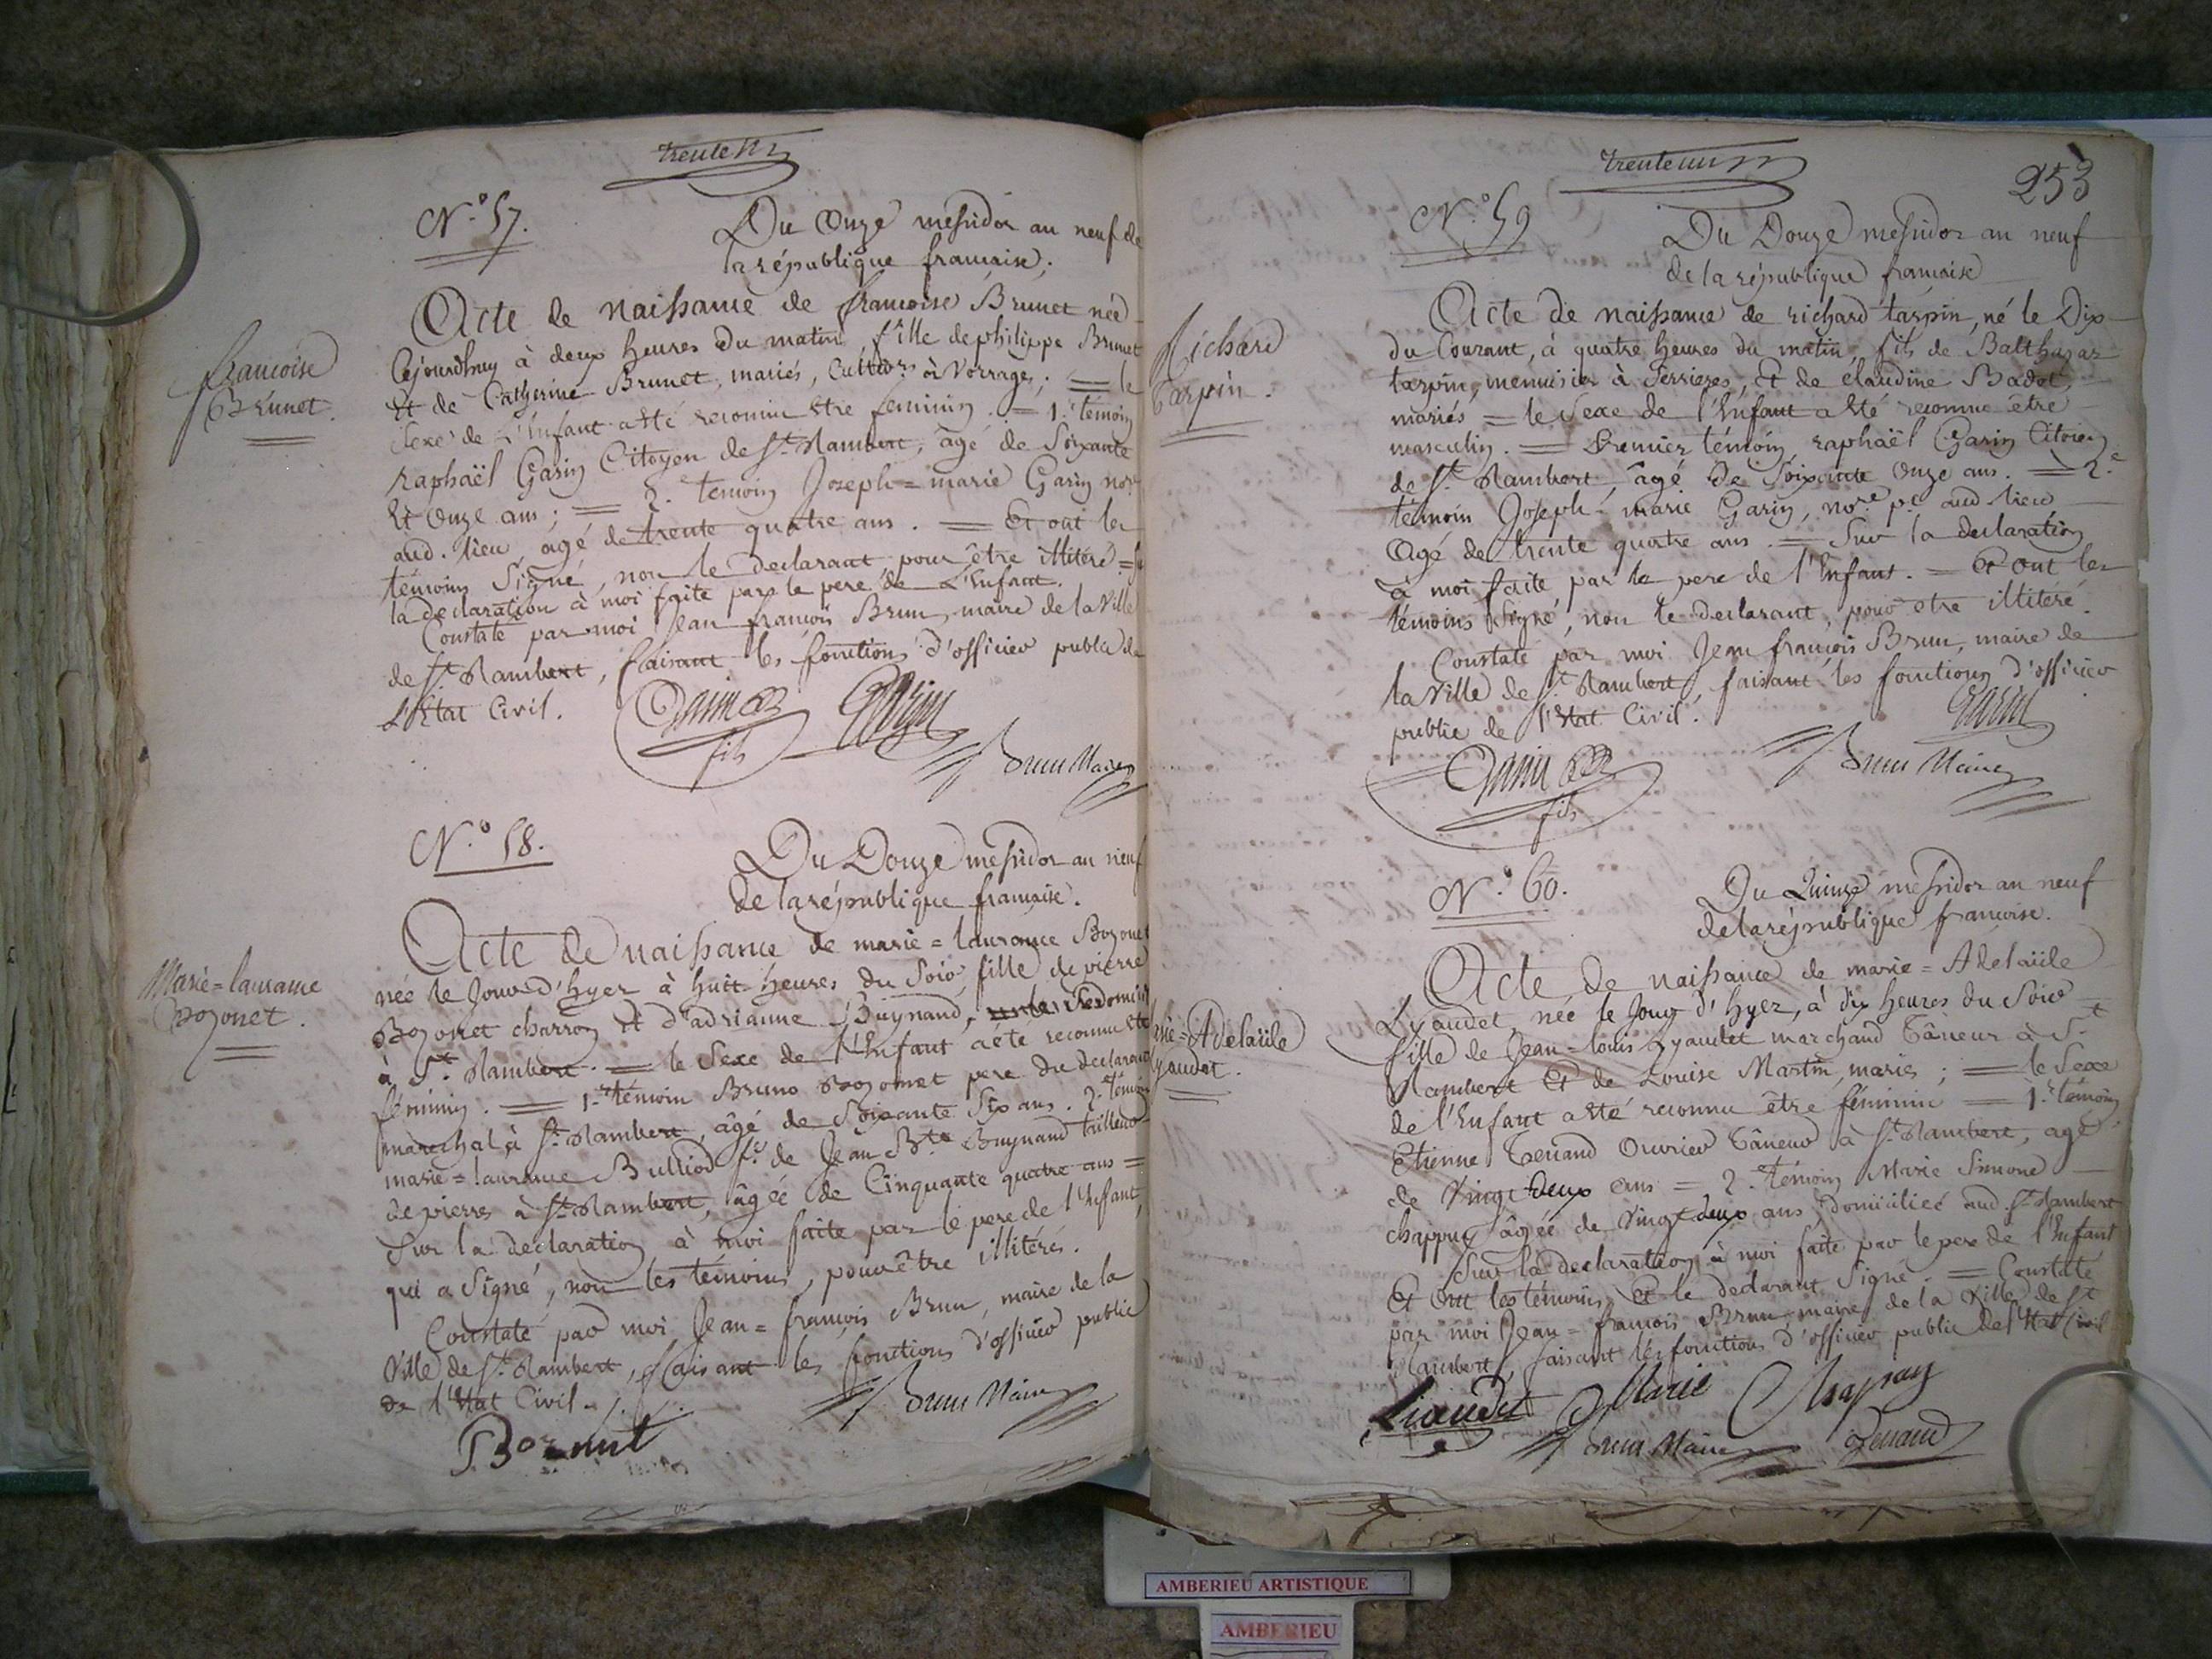 trente
N.o 57.
Du Onze messidor an neuf de
la république francaise.
francoise
Brunet.
Acte de naissance de francoise Brunet née
Cejourdhuy à deux heures du matin, fille de philippe Brunet
et de Catherine Brunet, mariés, Cultrs à Vorrages; = le
Sexe de L'Enfant a été reconnu être feminin. = 1.r témoin
raphaël Garin Citoyen de St. Rambert, âgé de Soixante
Et Onze ans; = 2.e temoin Joseph = marie Garin nore
aud. lieu, agé de trente quatre ans. = Et ont les
témoins Signé, non le declarant pour être illitéré =
la declaration à moi faite par le pere de L'Enfant.
Constaté par moi Jean françois Brun, maire de la Ville
de St. Rambert, faisant les fonctions d'officier public de
L'Etat Civil.
Garin
fils
Garin
Brun Maire
N.o 58.
Du Douze messidor an neuf
de la république francaise.
Marie = laurance
Bozonet.
Acte de naissance de marie = laurance Bozonet
née le Jour d'hyer à huit heures du Soir, fille de pierre
Bozonet charron et d'adrianne Buynand,
à St. Rambert. = le Sexe de l'Enfant a été reconnu être
féminin. = 1.r témoin Bruno Bozonet pere du declarant
marechal à St. Rambert, âgé de Soixante Six ans. 2.e témoin
marie = laurance Bulliod fe. de Jean Bte. Buynand tailleur
de pierres à St. Rambert, âgée de Cinquante quatre ans =
Sur la declaration à moi faite par le pere de l'Enfant,
qui a Signé, non les témoins, pour être illitérés.
Constaté par moi Jean = françois Brun, maire de la
Ville de St. Rambert, faisant les fonctions d'officier public
de l'Etat Civil.
Brun Maire
Bozonet
trente un
253
N.o 59
Du Douze messidor an neuf
de la république francaise
Richard
Tarpin.
Acte de naissance de richard tarpin, né le Dix
du Courant, à quatre heures du matin, fils de Balthazar
tarpin, menuisier à Serrieres, et de claudine Badot,
mariés = le Sexe de l'Enfant a été reconnu être
masculin. = Premier témoin, raphaël Garin Citoien
de St. Rambert, âgé de Soixante Onze ans. = 2.e
témoin Joseph = marie Garin, nore. pc. aud. lieu,
Agé de trente quatre ans. = Sur la declaration
à moi faite par le pere de l'Enfant. = Et ont les
témoins Signé, non le declarant, pour etre illitéré.
Constaté par moi Jean françois Brun, maire de
la Ville de St. Rambert, faisant les fonctions d'officier
public de l'Etat Civil.
Garin
Garin
fils
Brun Maire
N.o 60.
Du Quinze messidor an neuf
de la république francoise.
rie = Adelaïde
yaudet.
Acte de naissance de marie = Adelaïde
Lyaudet, née le Jour d'hyer, à dix heures du Soir
fille de Jean = louis Lyaudet marchand Tâneur à St
Rambert Et de Louise Martin, mariés; = le Sexe
de l'Enfant a été reconnu être féminin = 1.r témoin
Etienne Tenand Ouvrier Tâneur à St. Rambert, agé
de Vingt deux ans = 2.e témoin Marie Simone
chappuy âgée de Vingt deux ans domiciliée aud. St. Rambert
Sur la declaration à moi faite par le pere de l'Enfant
Et Ont les témoins Et le declarant Signé. = Constaté
par moi Jean = francois Brun maire de la Ville de St
Rambert, faisant les fonctions d'officier public de l'Etat Civil
Liaudet Marie Chapuy
Brun Maire Tenand
AMBERIEU ARTISTIQUE
AMBERIEU